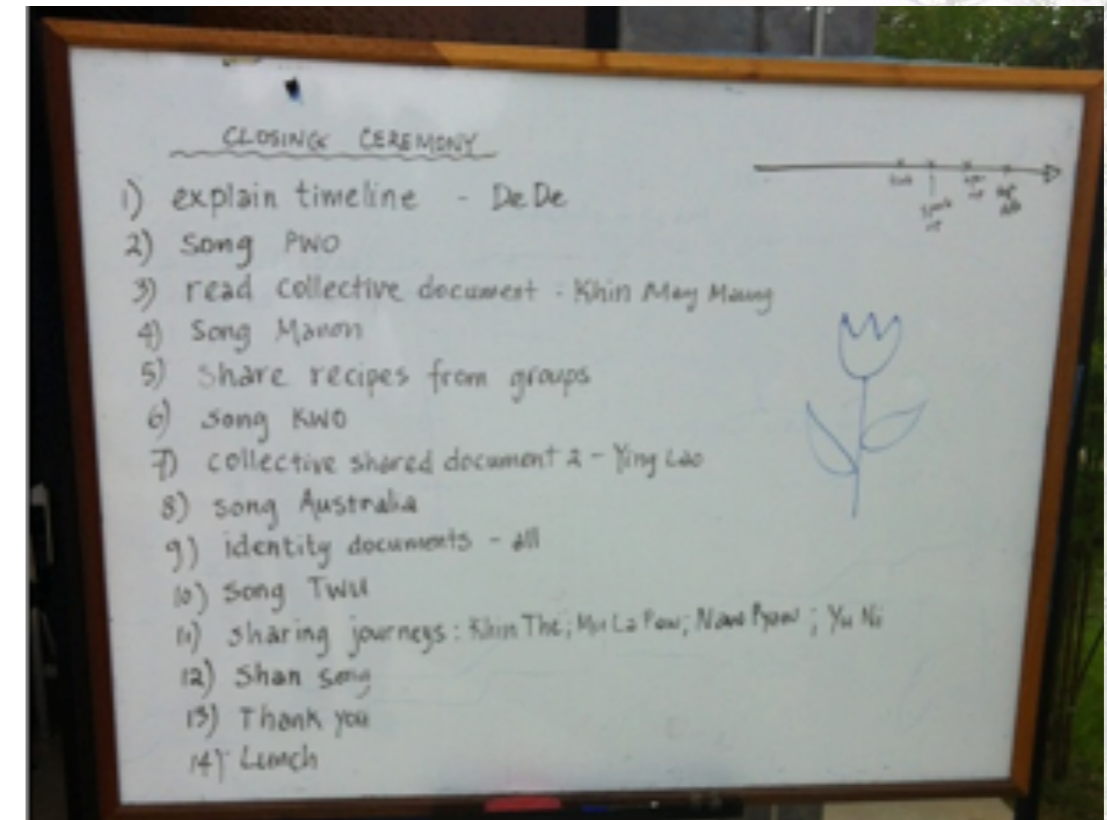 CLOSING CEREMONY
1) explain timeline - De De
2) song PWO
3) read collective document : Khin May Maung
4) Song Manon
5) share recipes from groups
6) song KWO
7) collective shared document 2 - Ying Lao
8) song Australia
9) identity documents - all
10) song TWU
11) sharing journeys : Khin The; Mu La Paw; ; Yu Ni
12) Shan song
13) Thank you
14) Lunch